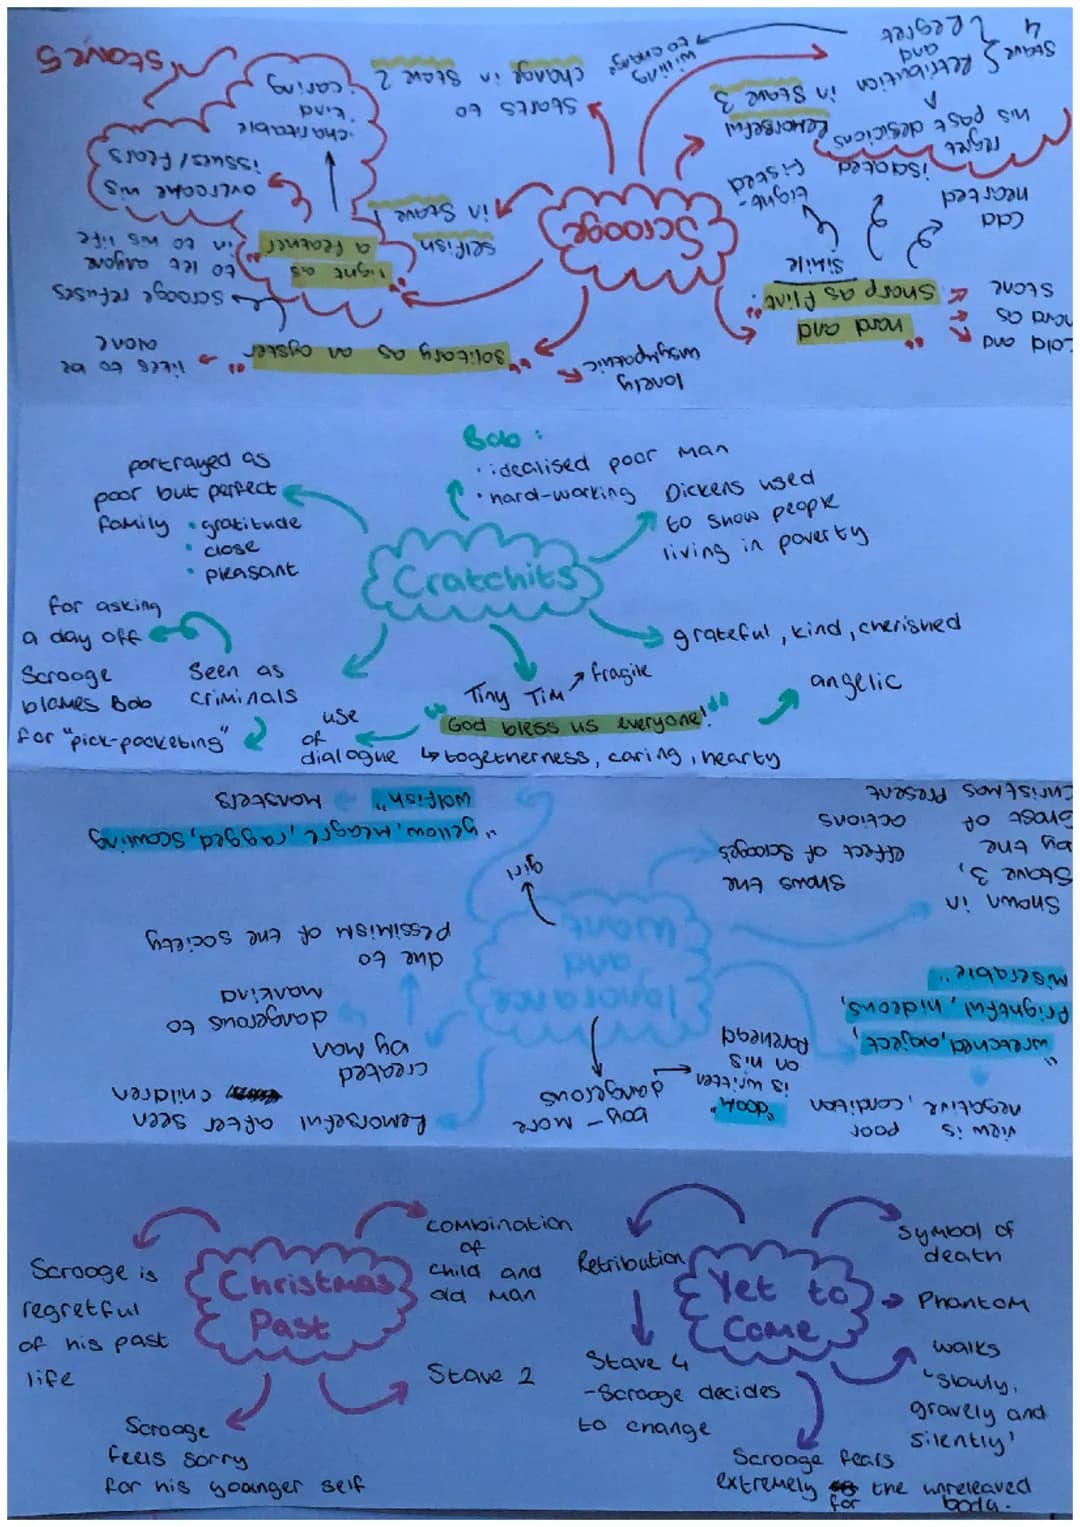 Scrooge
"hard and
sharp as flint"
simile
cold and
hard as
stone
cold
hearted
isolated
tight-
fisted
lonely
unsypathic
"solitary as an oyster"
likes to be
alone
Scrooge refuses
to let anyone
in to his life
selfish
in Stave 1
"light as
a feather"
overcome his
issues/fears
charitable
kind
caring
Stave 5
starts to
change in Stave 2
willing
to change
Remorseful
in Stave 3
regret
his past desicions
Stave
4
Retribution
and
Regret
Cratchits
Bob:
· idealised poor man
· hard-working
Dickens used
to show people
living in poverty
portrayed as
poor but perfect
family
· gratitude
· close
· pleasant
for asking
a day off
Scrooge
blames Bob
for "pick-pocketing"
Seen as
criminals
grateful, kind, cherished
Tiny Tim
fragile
"God bless us everyone!"
angelic
use
of
dialogue
↳ togetherness, caring, hearty
Ignorance
and
Want
Remorseful after seen
children
created
by man
dangerous to
mankind
due to
pessimism of the society
"yellow, meagre, ragged, scowling
wolfish"
monsters
girl
boy - more
dangerous
"doom"
is written
on his
forehead
view is
negative, poor
condition
"wretched, abject,
frightful, hideous,
miserable"
Shown in
Stave 3,
by the
Ghost of
Christmas Present
shows the
effect of Scrooges
actions
Christmas
Past
Scrooge is
regretful
of his past
life
combination
of
child and
old man
Stave 2
Scrooge
feels sorry
for his younger self
Yet to
Come
Retribution
Stave 4
-Scrooge decides
to change
Symbol of
death
Phantom
walks
"slowly,
gravely and
silently'
Scrooge fears
extremely for the unreleaved
body.